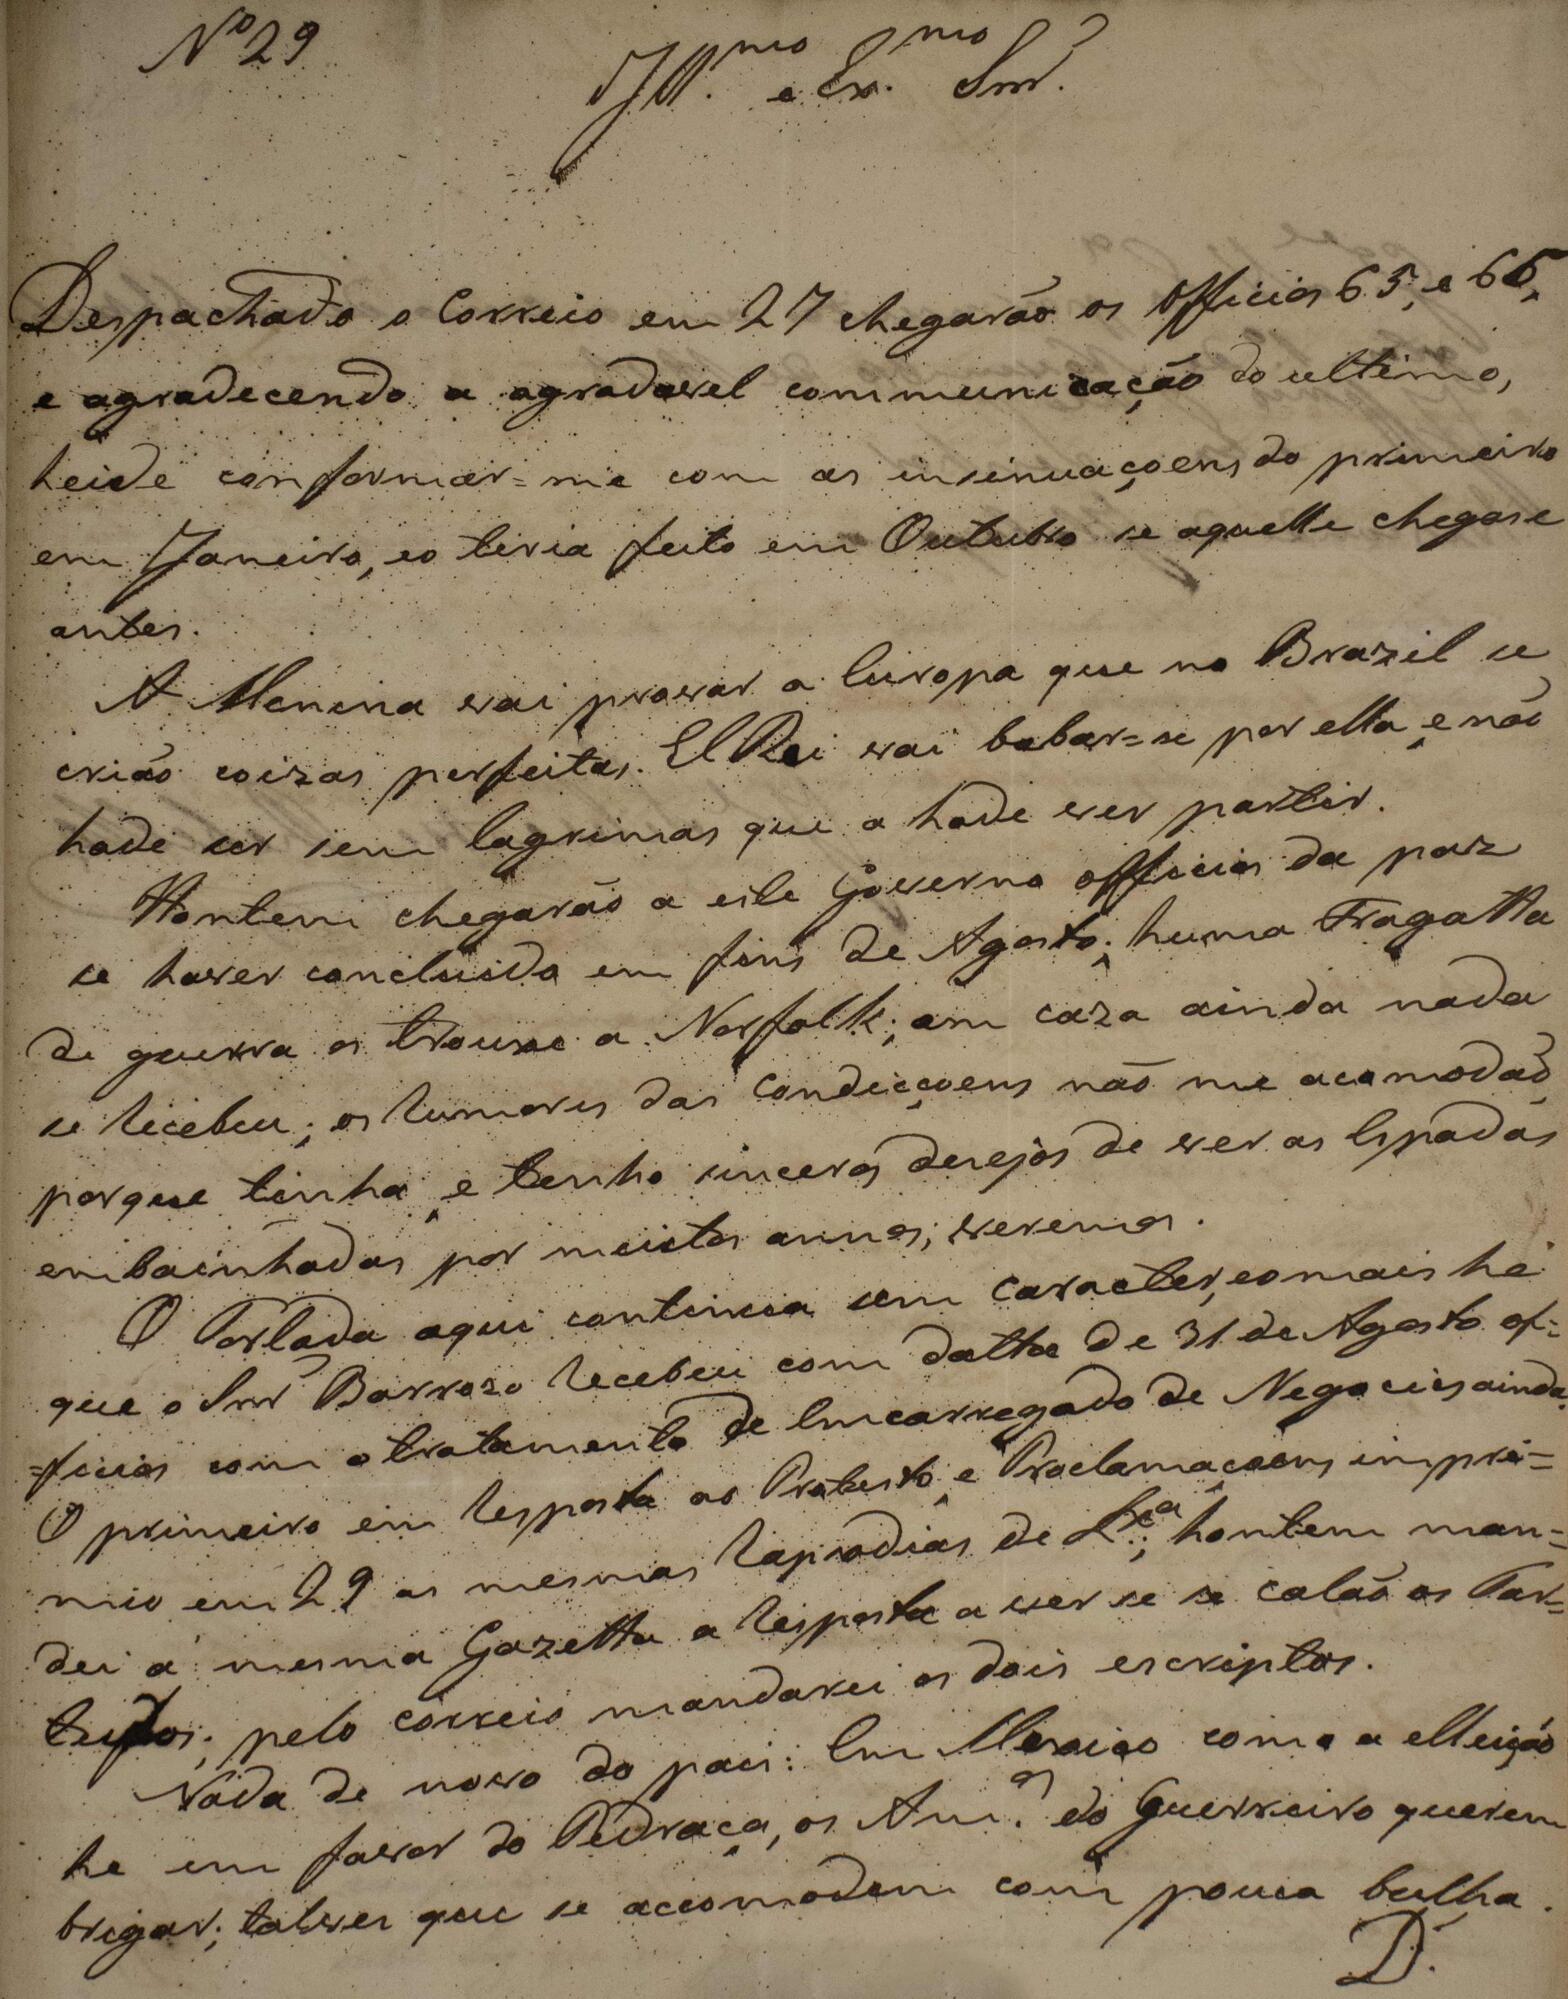 Nº 29
Ill.mo e Ex.mo Snr.
Despachado o Correio em 27 chegarão os Officios 65, e 66,
e agradecendo a agradavel communicação do ultimo,
heide conformar=me com as insinuaçoens do primeiro
em Janeiro, eo teria feito em Outubro se aquelle chegase
antes.
A Menina vai provar a Europa que no Brazil se
crião coizas perfeitas. El Rei vai babar=se por ella, e não
hade ser sem lagrimas que a hade ver partir.
Hontem chegarão a este Governo officios da paz
se haver concluido em fins de Agosto; huma Fragatta
de guerra os trouxe a Norfolk; em caza ainda nada
se recebeu; os rumores das Condicçoens não me acomodão,
porque tinha, e tenho sinceros desejos de ver as Espadas
embainhadas por muitos annos; veremos.
O Torlada aqui continua sem caracter, eo mais hé
que o Snr Barrozo recebeu com datta de 31 de Agosto of=
=ficios com o tratamento de Emcarregado de Negocios ainda.
O primeiro em resposta ao Protesto, e Proclamaçoens impri=
mio em 29 as mesmas rapsodias de Lx.a; hontem man=
dei á mesma Gazetta a resposta a ver se se calão os Par=
tidos; pelo correio mandarei os dois escriptos.
Nada de novo do paiz: Em Mexico como a elleição
he em favor do Pedraça, os Am.os do Guerreiro querem
brigar; talves que se accomodem com pouca bulha.
D.